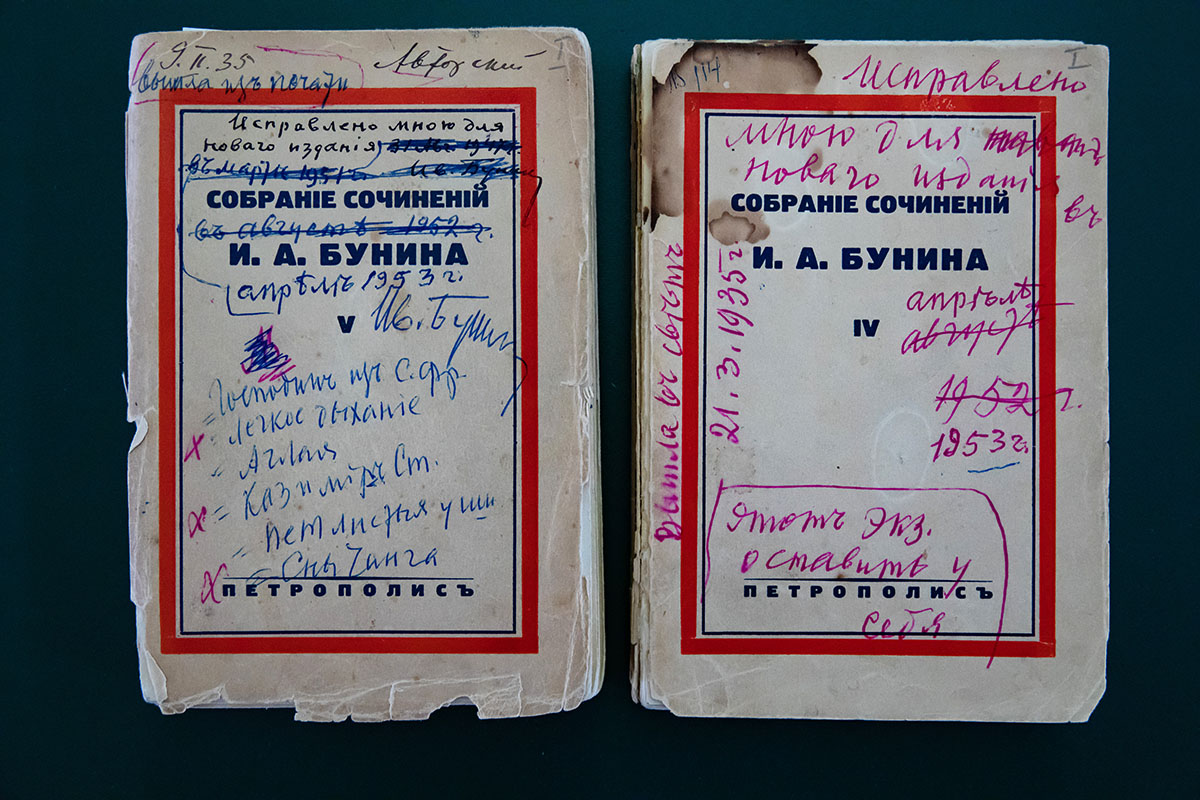 9.II.35 Авторскій
вышла изъ печати
I
Исправлено мною для
новаго изданія
въ мартѣ 1951 г. Ив. Бунин
СОБРАНІЕ СОЧИНЕНІЙ
въ августѣ 1952 г.
И. А. БУНИНА
апрѣлѣ 1953 г.
V Ив. Бунин
= Господинъ из С. Фр.
x = Легкое дыханіе
= Аглая
x = Казимиръ Ст.
= Петлистыя уши
x = Сны Чанга
ПЕТРОПОЛИСЪ
I
Исправлено
мною для
новаго изданія
въ
СОБРАНІЕ СОЧИНЕНІЙ
И. А. БУНИНА
апрѣлѣ
IV
августѣ
1952 г.
1953 г.
Вышла въ свѣтъ
21.3.1935 г.
Этотъ экз.
оставить у
ПЕТРОПОЛИСЪ
себя